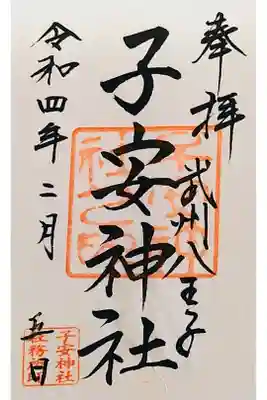 奉拝
武州八王子
子安神社
令和四年二月
五日
子安神社
社務所